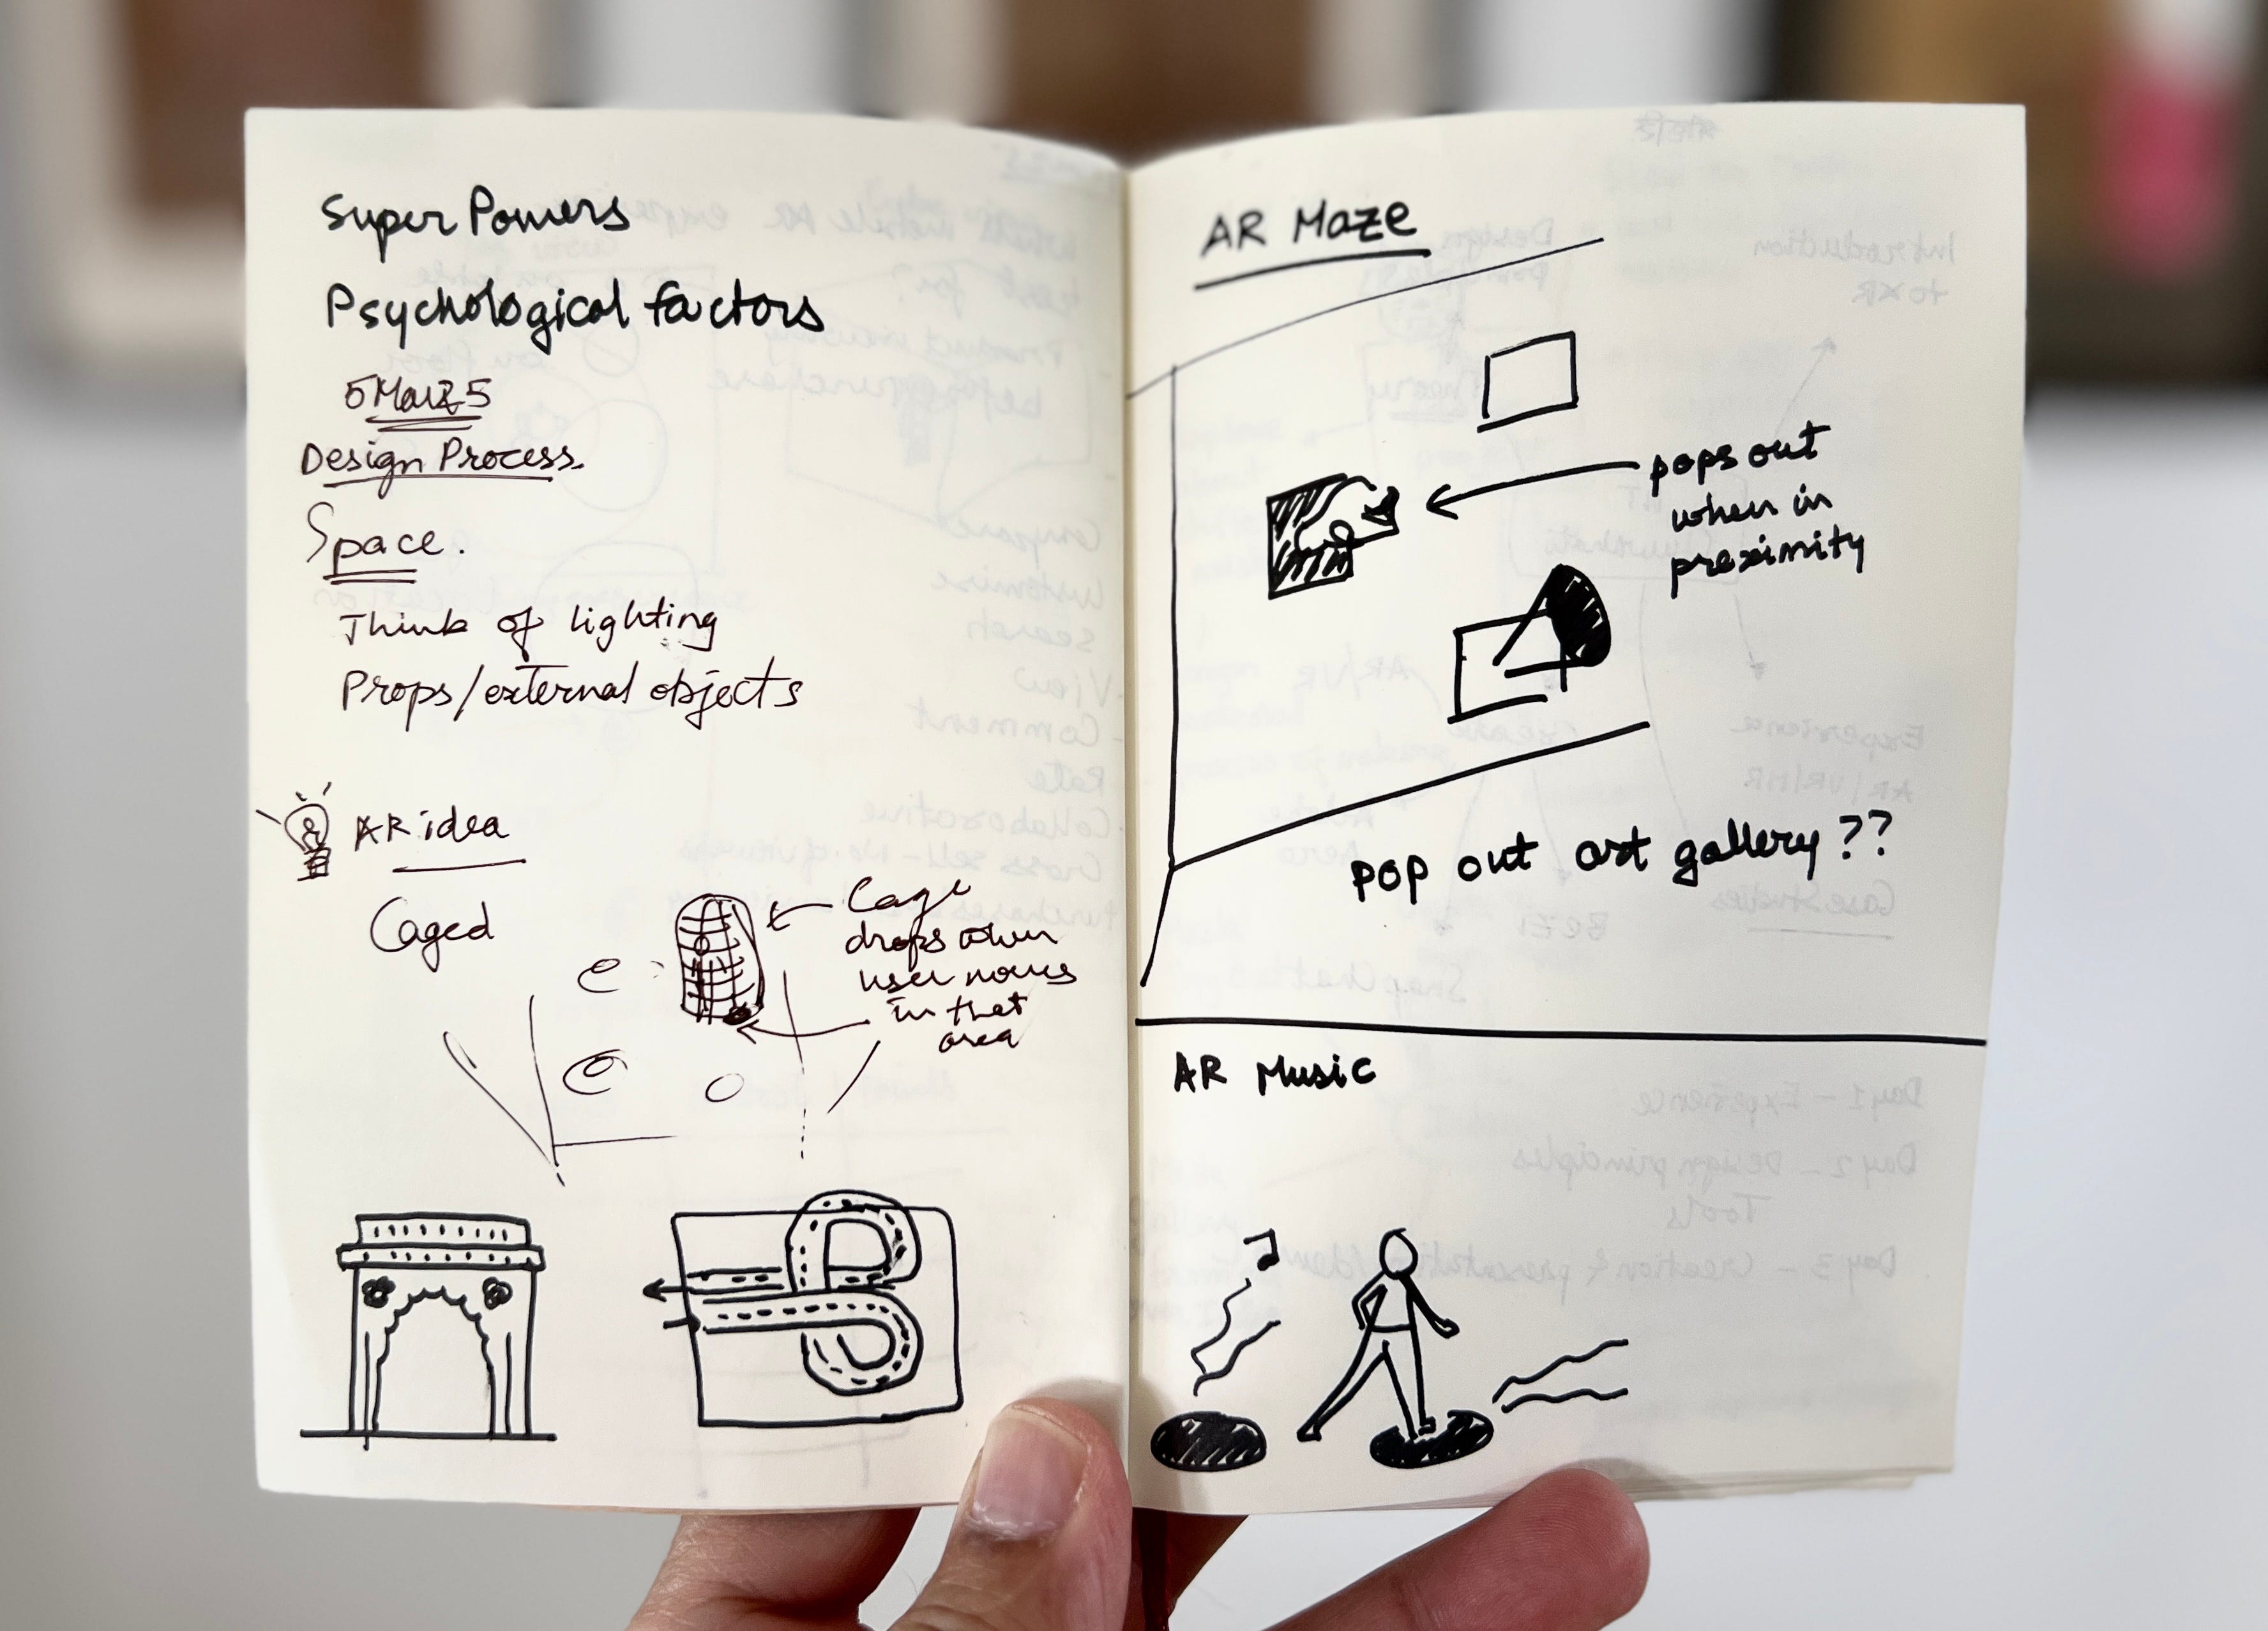 Super Powers
Psychological factors
5Mar25
Design Process.
Space.
Think of lighting
Props/external objects
AR idea
Caged
Cage
drops when
user moves
in that
area
AR Maze
pops out
when in
proximity
pop out art gallery??
AR Music